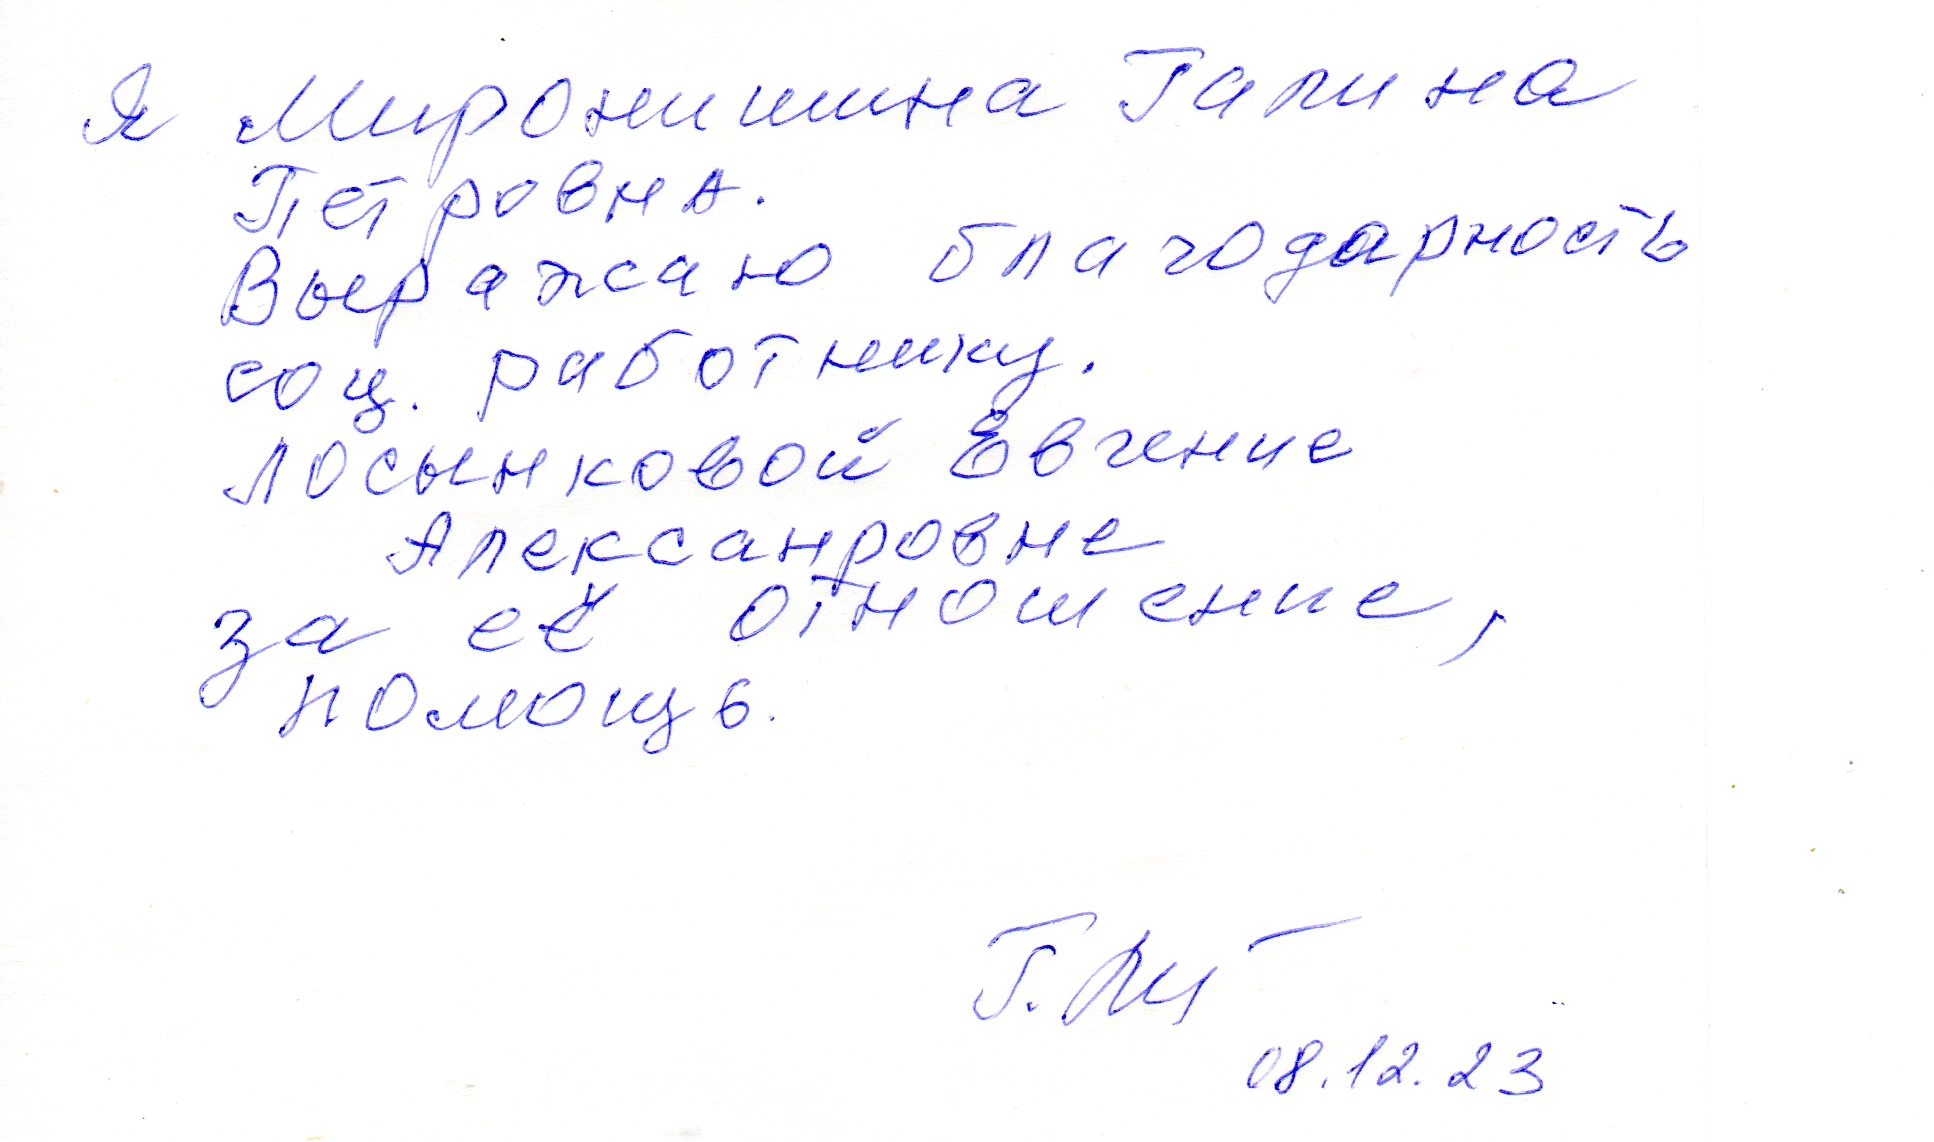 Я Миронишина Галина
Петровна.
Выражаю благодарность
соц. работнику.
Лосынковой Евгение
Алексанровне
за её отношение,
помощь.
08.12.23